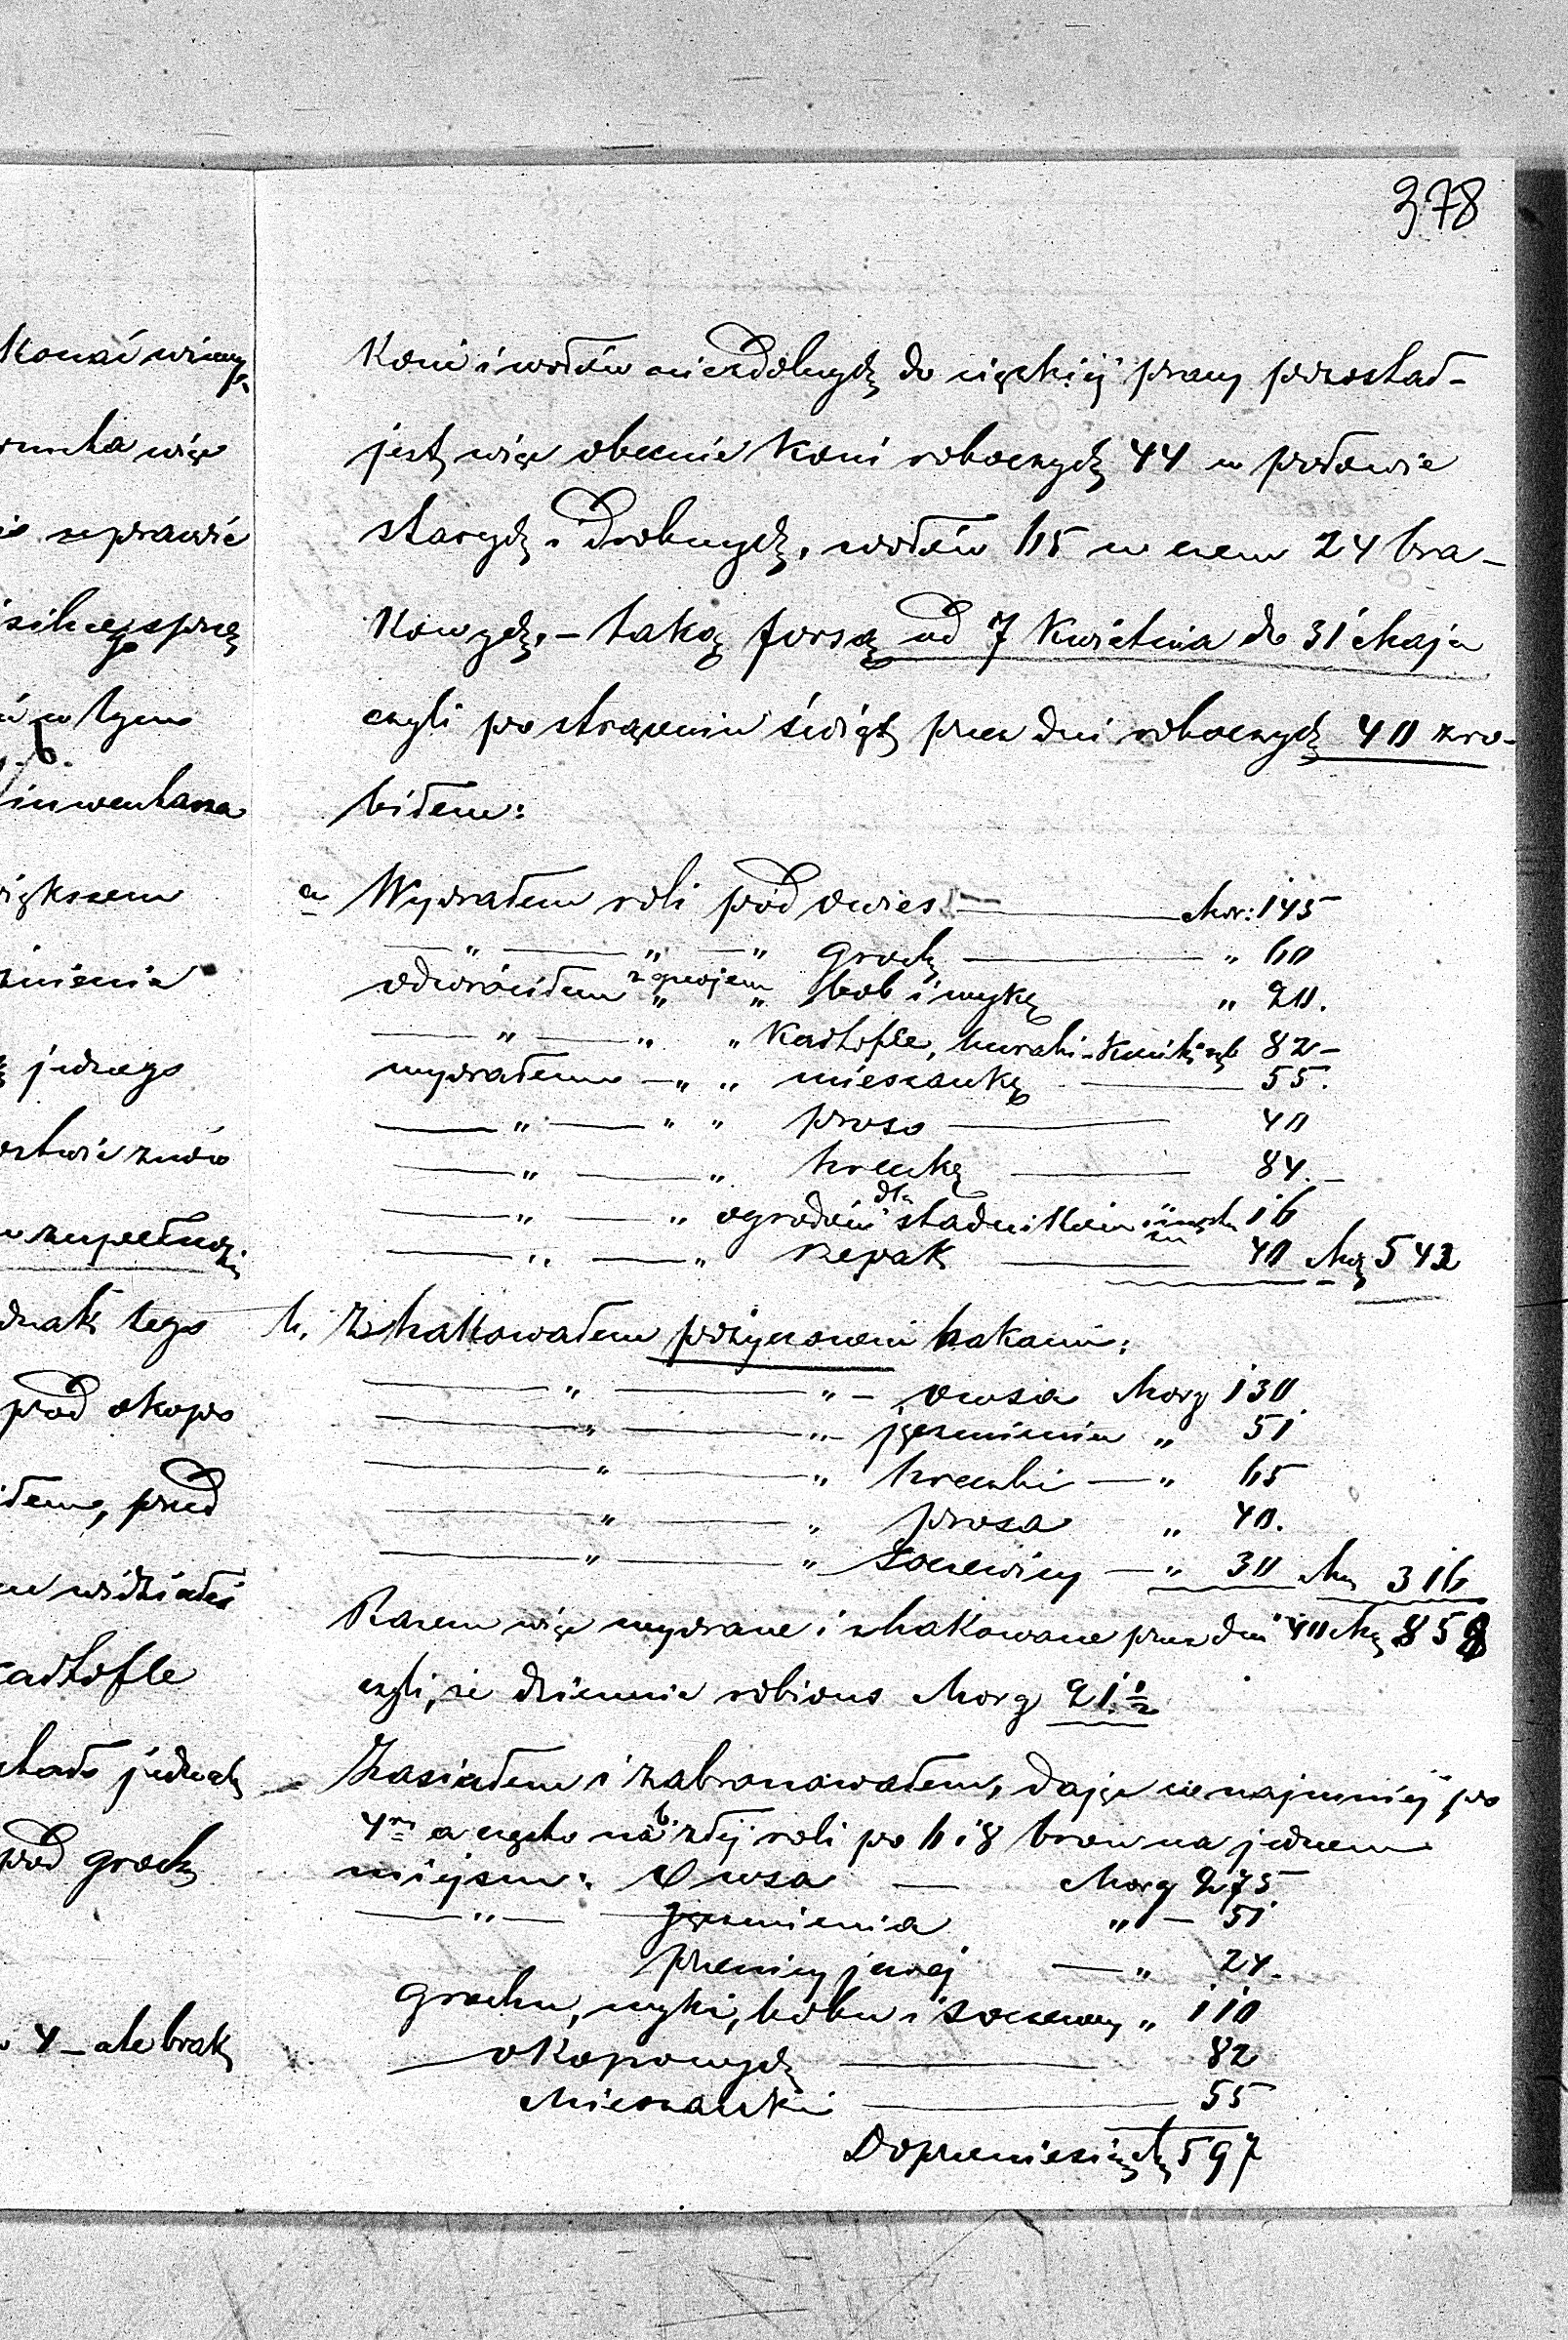 378
Koni i wołów niezdolnych do ciężkiéj pracy pozostał-
jest więc obecnie Koni roboczych 44 w połowie
starych i drobnych, wołów 65 w czem 24 bra-
kowych. – taką forsą od 7 Kwietnia do 31 Maja
czyli po strąceniu świąt przez dni roboczych 40 zro-
biłem:
a Wyorałem roli pod owies — Mor: 145
— „ — „ — „ groch — „ 60
odwróciłem z gnojem „ „ bob i wykę „ 20.
— „ — „ „ Kartofle, buraki 82 –
wyorałem — „ „ mieszankę — 55.
— „ — „ „ proso — 40
— „ — „ hreczkę — 84. –
— „ — „ ogrodów dla 16
— „ — „ rzepak — 40 Mg 542
b. Zhakowałem pożyczonemi hakami:
— „ — „ – owsa Morg 130
— „ — „ – jęczmienia „ 51
— „ — „ hreczki — „ 65
— „ — „ prosa „ 40.
— „ — „ Soczewicy — „ 30 Mg 316
Razem więc wyorane i zhakowane przez dni 40 Mg 858
czyli, że dziennie robiono Morg 21 1/2
Zasiałem i zabronowałem, dając co najmniéj po
4ry a często na roli po 6 i 8 bron na jednem
miejscu: Owsa — Morg 275
— „ — jęczmienia „ – 51
pszenicy jarej — „ 24.
Grochu, wyki, bobu i Soczewicy „ 110
— okopowych — 82
Mieszanki — 55
Do przeniesienia Mg 597
Konać
więc
naprawić
w tym
6.
inwentarza
większem
jednego
znów
zupełnej
jednak tego
pod okopo
przed
widziałeś
kartofle
jednak
pod groch
4 – ale brak